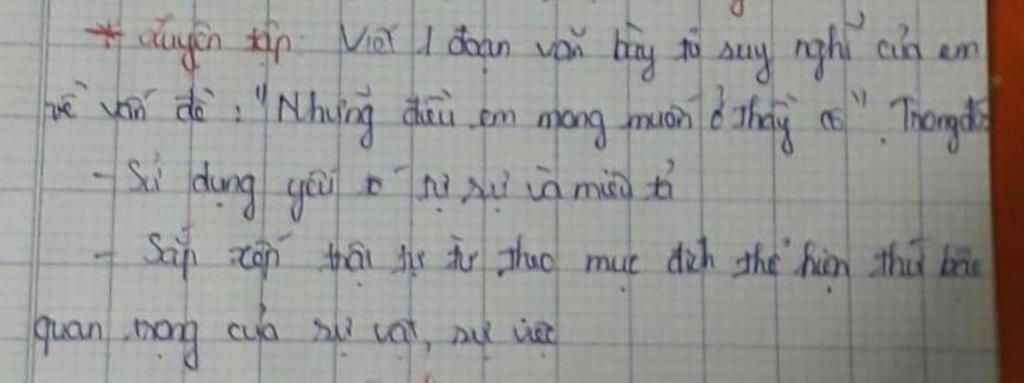 * Luyện tập: Viết 1 đoạn văn bày tỏ suy nghĩ của em
về vấn đề: "Những điều em mong muốn ở thầy cô". Trong đó
- Sử dụng yếu tố tự sự và miêu tả
- Sắp xếp trật tự từ theo mục đích thể hiện thứ bậc
quan trọng của sự vật, sự việc